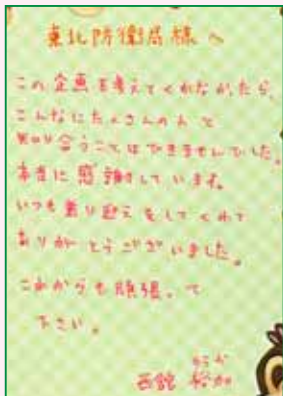 東北防衛局様へ
この企画を考えてくれなかったら、
こんなにたくさんの人と
知り合うことはできませんでした。
本当に感謝しています。
いつも送り迎えをしてくれて
ありがとうございました。
これからも頑張って
下さい。
ゆうか
西舘 裕加